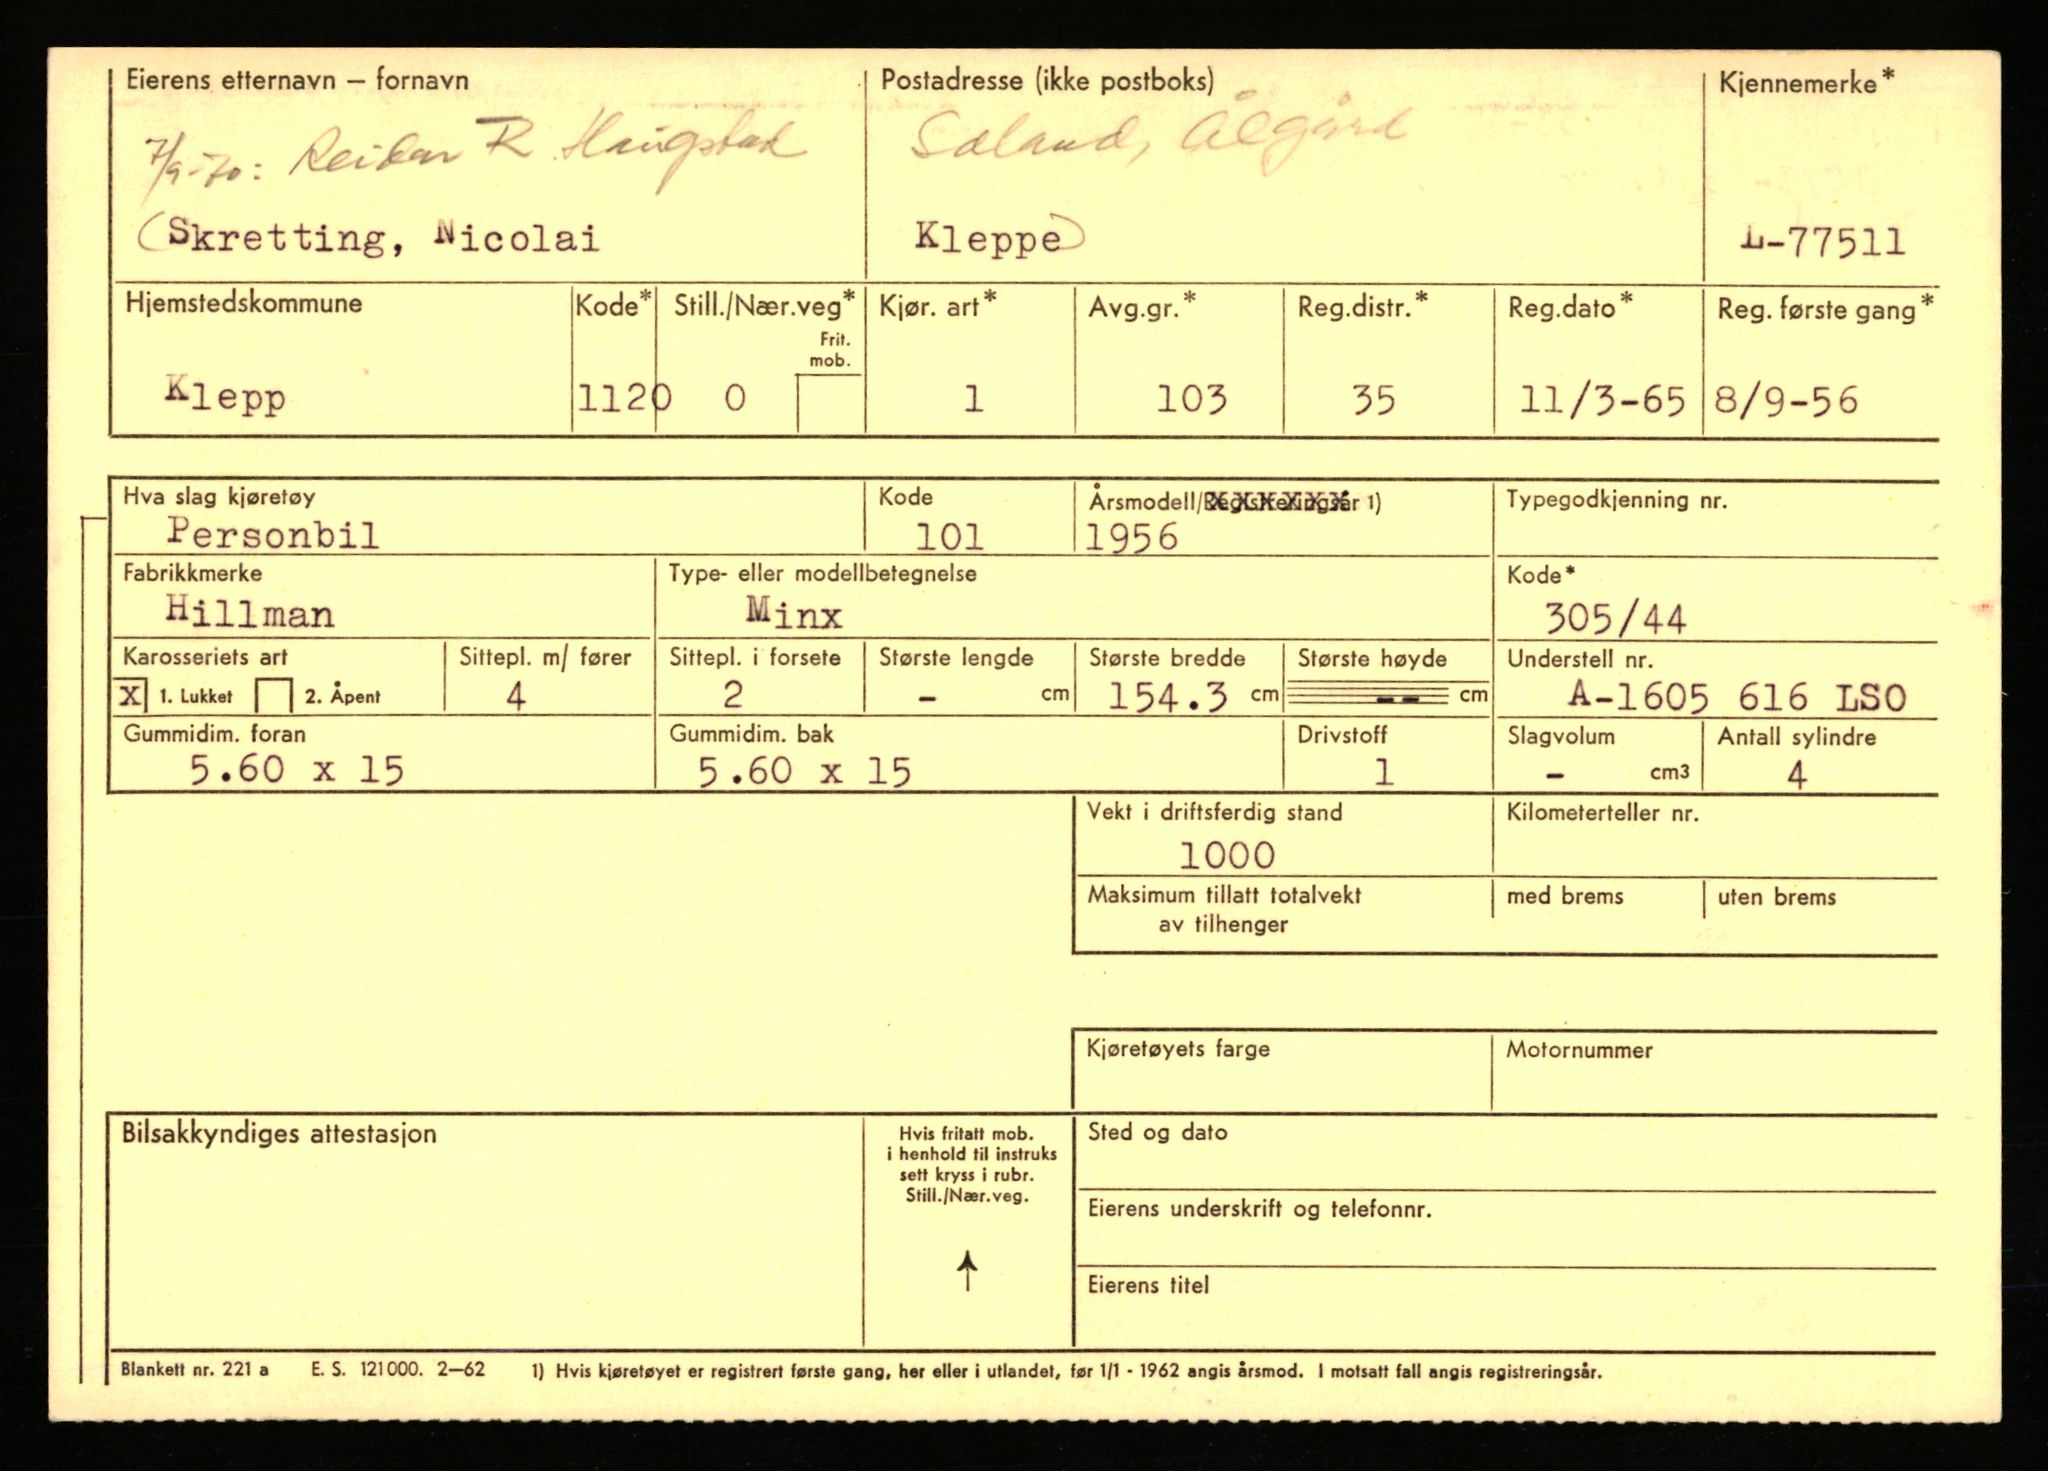 Eierens etternavn – fornavn Postadresse (ikke postboks) Kjennemerke*
7/9-70: Reidar R. Haugstad Sæland, Ålgård
(Skretting, Nicolai Kleppe) L-77511
Hjemstedskommune Kode* Still./Nær.veg* Kjør. art* Avg.gr.* Reg.distr.* Reg.dato* Reg. første gang*
Frit.
mob.
Klepp 1120 0 1 103 35 11/3-65 8/9-56
Hva slag kjøretøy Kode Årsmodell/Registreringsår 1) Typegodkjenning nr.
Personbil 101 1956
Fabrikkmerke Type- eller modellbetegnelse Kode*
Hillman Minx 305/44
Karosseriets art Sittepl. m/ fører Sittepl. i forsete Største lengde Største bredde Største høyde Understell nr.
X 1. Lukket 2. Åpent 4 2 - cm 154.3 cm -- cm A-1605 616 LSO
Gummidim. foran Gummidim. bak Drivstoff Slagvolum Antall sylindre
5.60 x 15 5.60 x 15 1 - cm3 4
Vekt i driftsferdig stand Kilometerteller nr.
1000
Maksimum tillatt totalvekt med brems uten brems
av tilhenger
Kjøretøyets farge Motornummer
Bilsakkyndiges attestasjon Hvis fritatt mob. Sted og dato
i henhold til instruks
sett kryss i rubr.
Still./Nær.veg.
Eierens underskrift og telefonnr.
Eierens titel
Blankett nr. 221 a E. S. 121000. 2–62 1) Hvis kjøretøyet er registrert første gang, her eller i utlandet, før 1/1 - 1962 angis årsmod. I motsatt fall angis registreringsår.